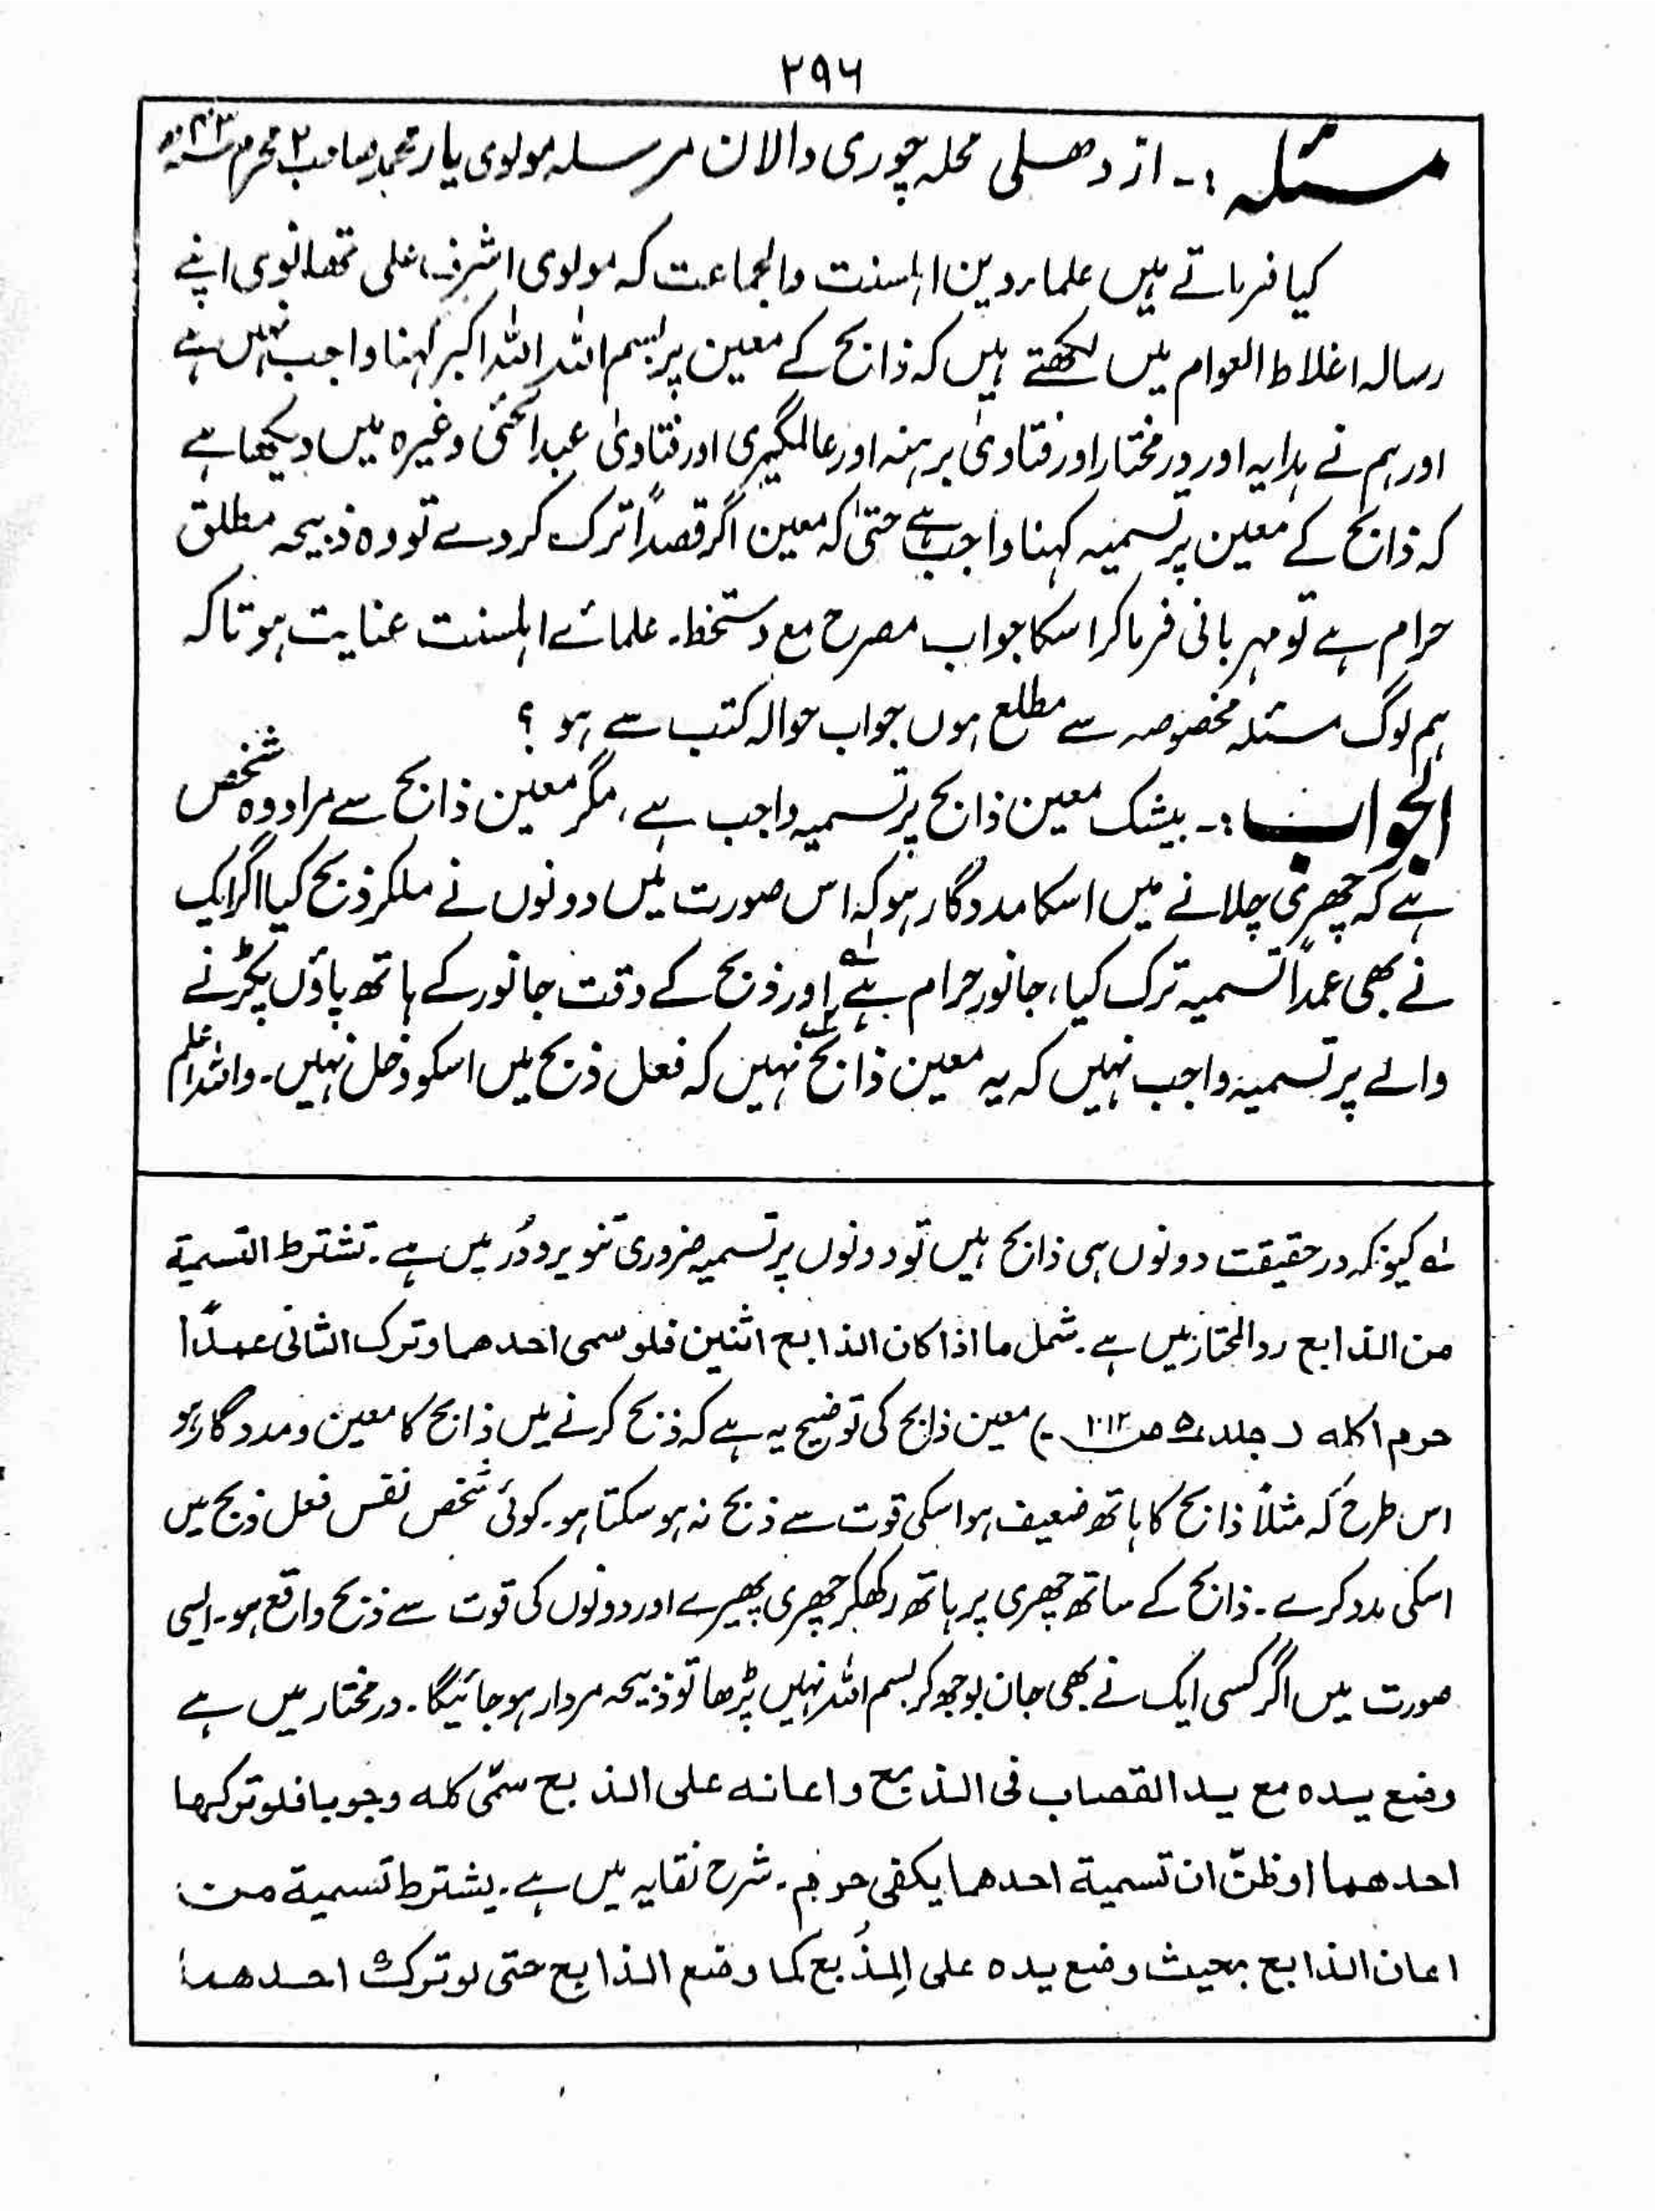 ۲۹۶
مسئلہ :۔ از دھلی محلہ چوری والان مرسلہ مولوی یار محمد صاحب ۲ محرم
کیا فرماتے ہیں علماء دین اہلسنت والجماعت کہ مولوی اشرف علی تھانوی اپنے
رسالہ اغلاط العوام میں لکھتے ہیں کہ ذابح کے معین پر بسم اللہ اللہ اکبر کہنا واجب نہیں ہے
اور ہم نے ہدایہ اور درمختار اور فتاویٰ برہنہ اور عالمگیری اور فتاویٰ عبدالحئی وغیرہ میں دیکھا ہے
کہ ذابح کے معین پر تسمیہ کہنا واجب ہے حتیٰ کہ معین اگر قصداً ترک کردے تو وہ ذبیحہ مطلق
حرام ہے تو مہربانی فرماکر اسکا جواب مصرح مع دستخط۔ علمائے اہلسنت عنایت ہو تاکہ
ہم لوگ مسئلہ مخصوصہ سے مطلع ہوں جواب حوالہ کتب سے ہو ؟
الجواب :۔ بیشک معین ذابح پر تسمیہ واجب ہے، مگر معین ذابح سے مراد وہ شخص
ہے کہ چھری چلانے میں اسکا مددگار ہو کہ اس صورت میں دونوں نے ملکر ذبح کیا اگر ایک
نے بھی عمداً تسمیہ ترک کیا، جانور حرام ہے ؂۱ اور ذبح کے وقت جانور کے ہاتھ پاؤں پکڑنے
والے پر تسمیہ واجب نہیں کہ یہ معین ذابح نہیں کہ فعل ذبح میں اسکو دخل نہیں۔ واللہ اعلم
؂۱ کیونکہ درحقیقت دونوں ہی ذابح ہیں تو دونوں پر تسمیہ ضروری تنویر و دُر میں ہے۔ تشترط التسمیۃ
من الذابح ردالمحتار میں ہے۔ شمل ما اذا کان الذابح اثنین فلو سمی احدھما وترک الثانی عمداً
حرم اکلہ (جلد ۵ ص ) معین ذابح کی توضیح یہ ہے کہ ذبح کرنے میں ذابح کا معین و مددگار ہو
اس طرح کہ مثلاً ذابح کا ہاتھ ضعیف ہو اسکی قوت سے ذبح نہ ہو سکتا ہو۔ کوئی شخص نفس فعل ذبح میں
اسکی مدد کرے۔ ذابح کے ساتھ چھری پر ہاتھ رکھکر چھری پھیرے اور دونوں کی قوت سے ذبح واقع ہو۔ ایسی
صورت میں اگر کسی ایک نے بھی جان بوجھ کر بسم اللہ نہیں پڑھا تو ذبیحہ مردار ہو جائیگا۔ درمختار میں ہے
وضع یدہ مع ید القصاب فی الذبح واعانہ علی الذبح سمّی کلہ وجوبا فلو ترکھا
احدھما او ظنّ ان تسمیۃ احدھما یکفی حرم۔ شرح نقایہ میں ہے۔ یشترط تسمیۃ من
اعان الذابح بحیث وضع یدہ علی المذبح کما وضع الذابح حتی لو ترک احدھما